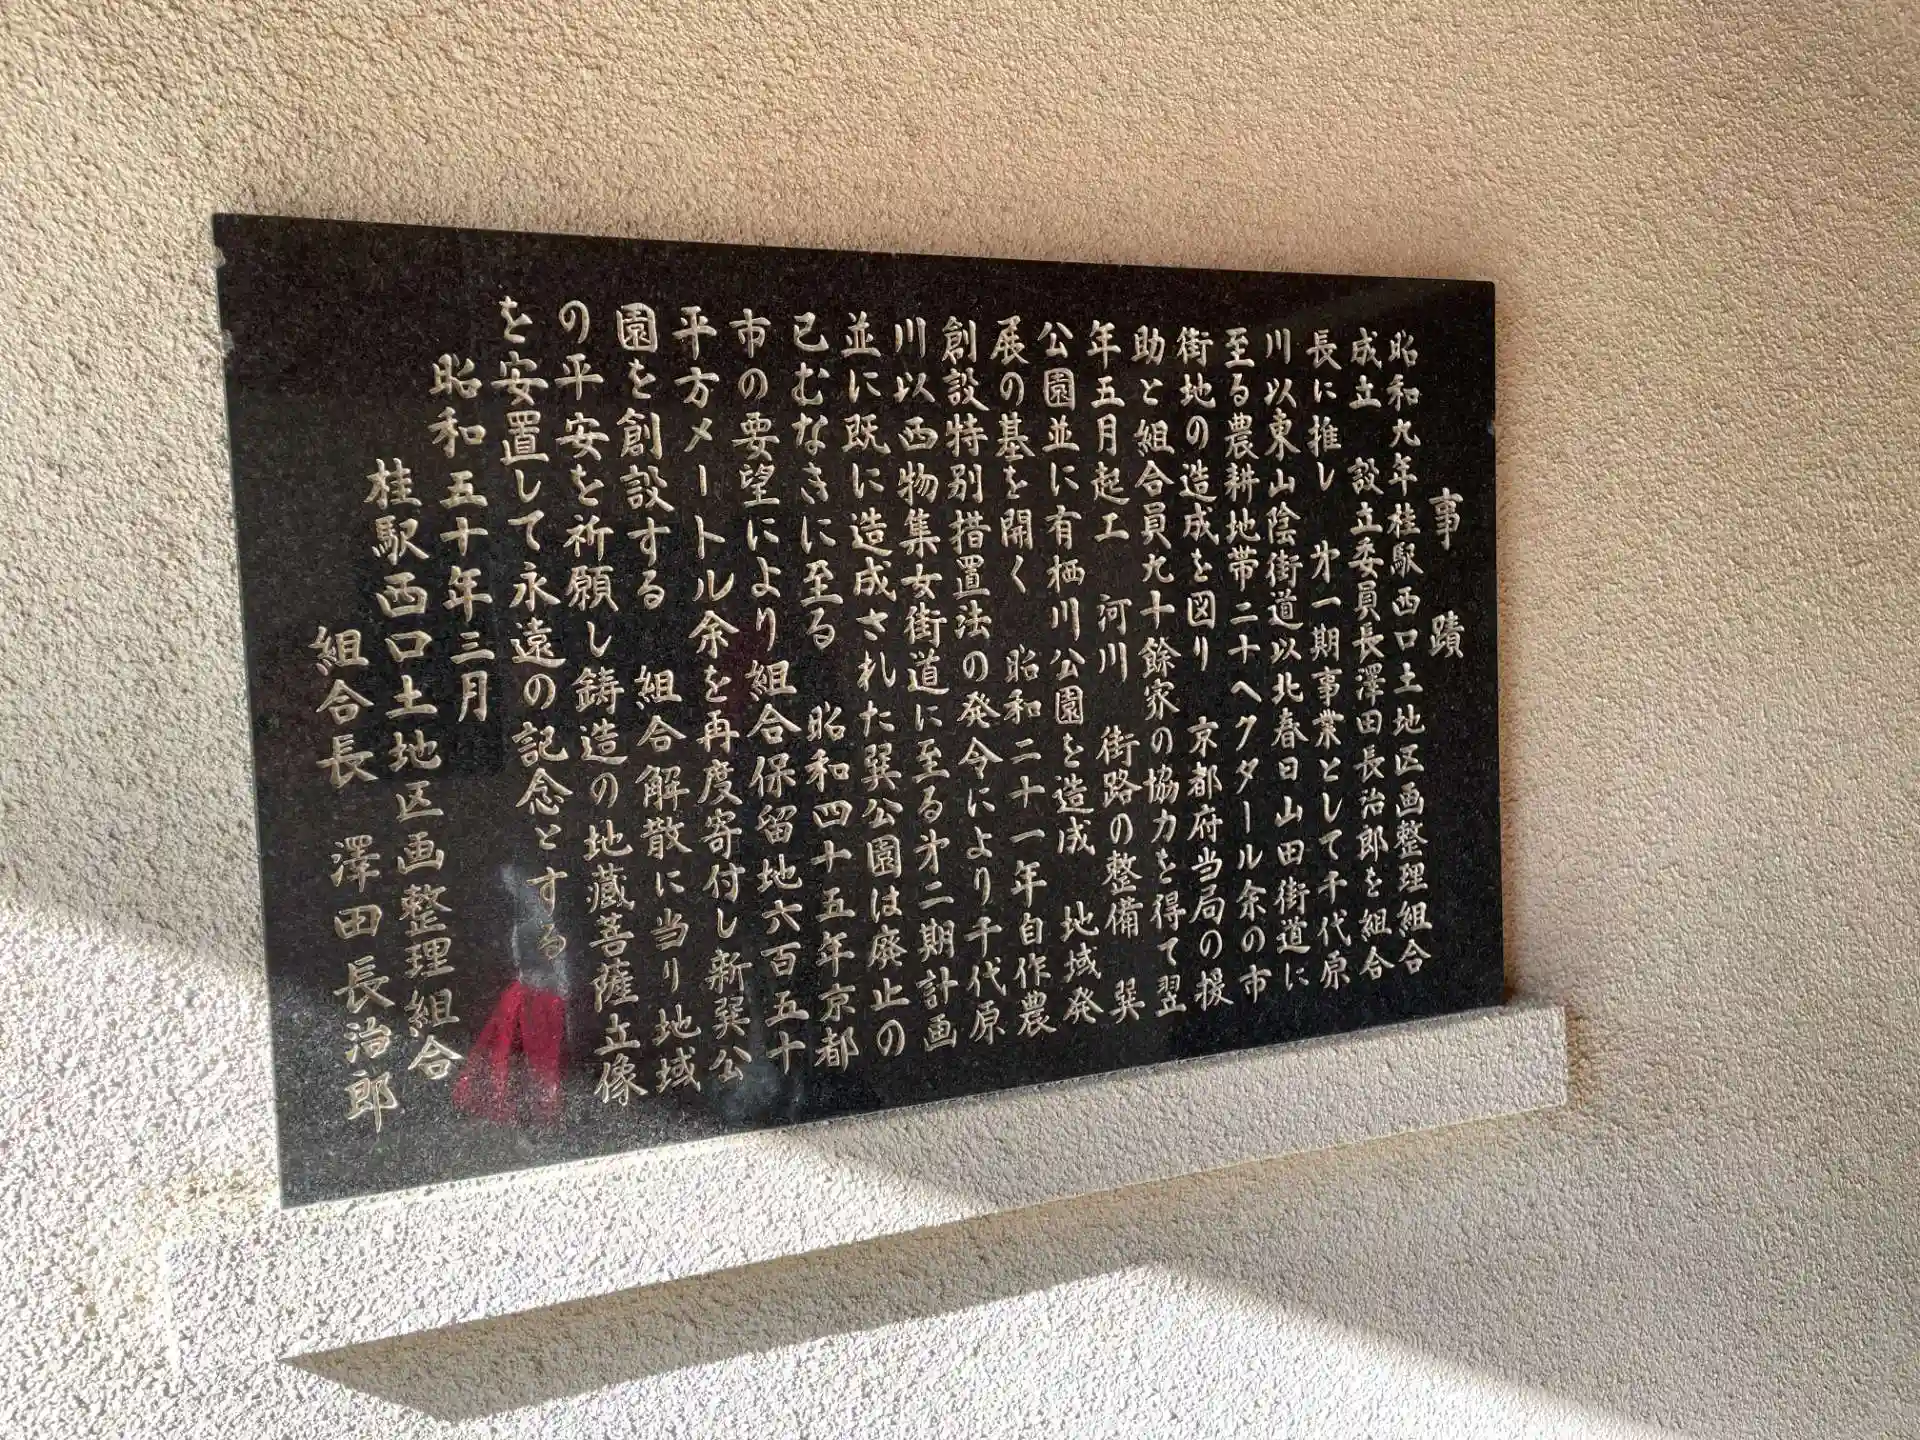 事蹟
昭和九年桂駅西口土地区画整理組合
成立 設立委員長澤田長治郎を組合
長に推し 㐧一期事業として千代原
川以東山陰街道以北春日山田街道に
至る農耕地帯二十ヘクタール余の市
街地の造成を図り 京都府当局の援
助と組合員九十餘家の協力を得て翌
年五月起工 河川 街路の整備 巽
公園並に有栖川公園を造成 地域発
展の基を開く 昭和二十一年自作農
創設特別措置法の発令により千代原
川以西物集女街道に至る㐧二期計画
並に既に造成された巽公園は廃止の
已むなきに至る 昭和四十五年京都
市の要望により組合保留地六百五十
平方メートル余を再度寄付し新巽公
園を創設する 組合解散に当り地域
の平安を祈願し鋳造の地蔵菩薩立像
を安置して永遠の記念とする
昭和五十年三月
桂駅西口土地区画整理組合
組合長 澤田長治郎